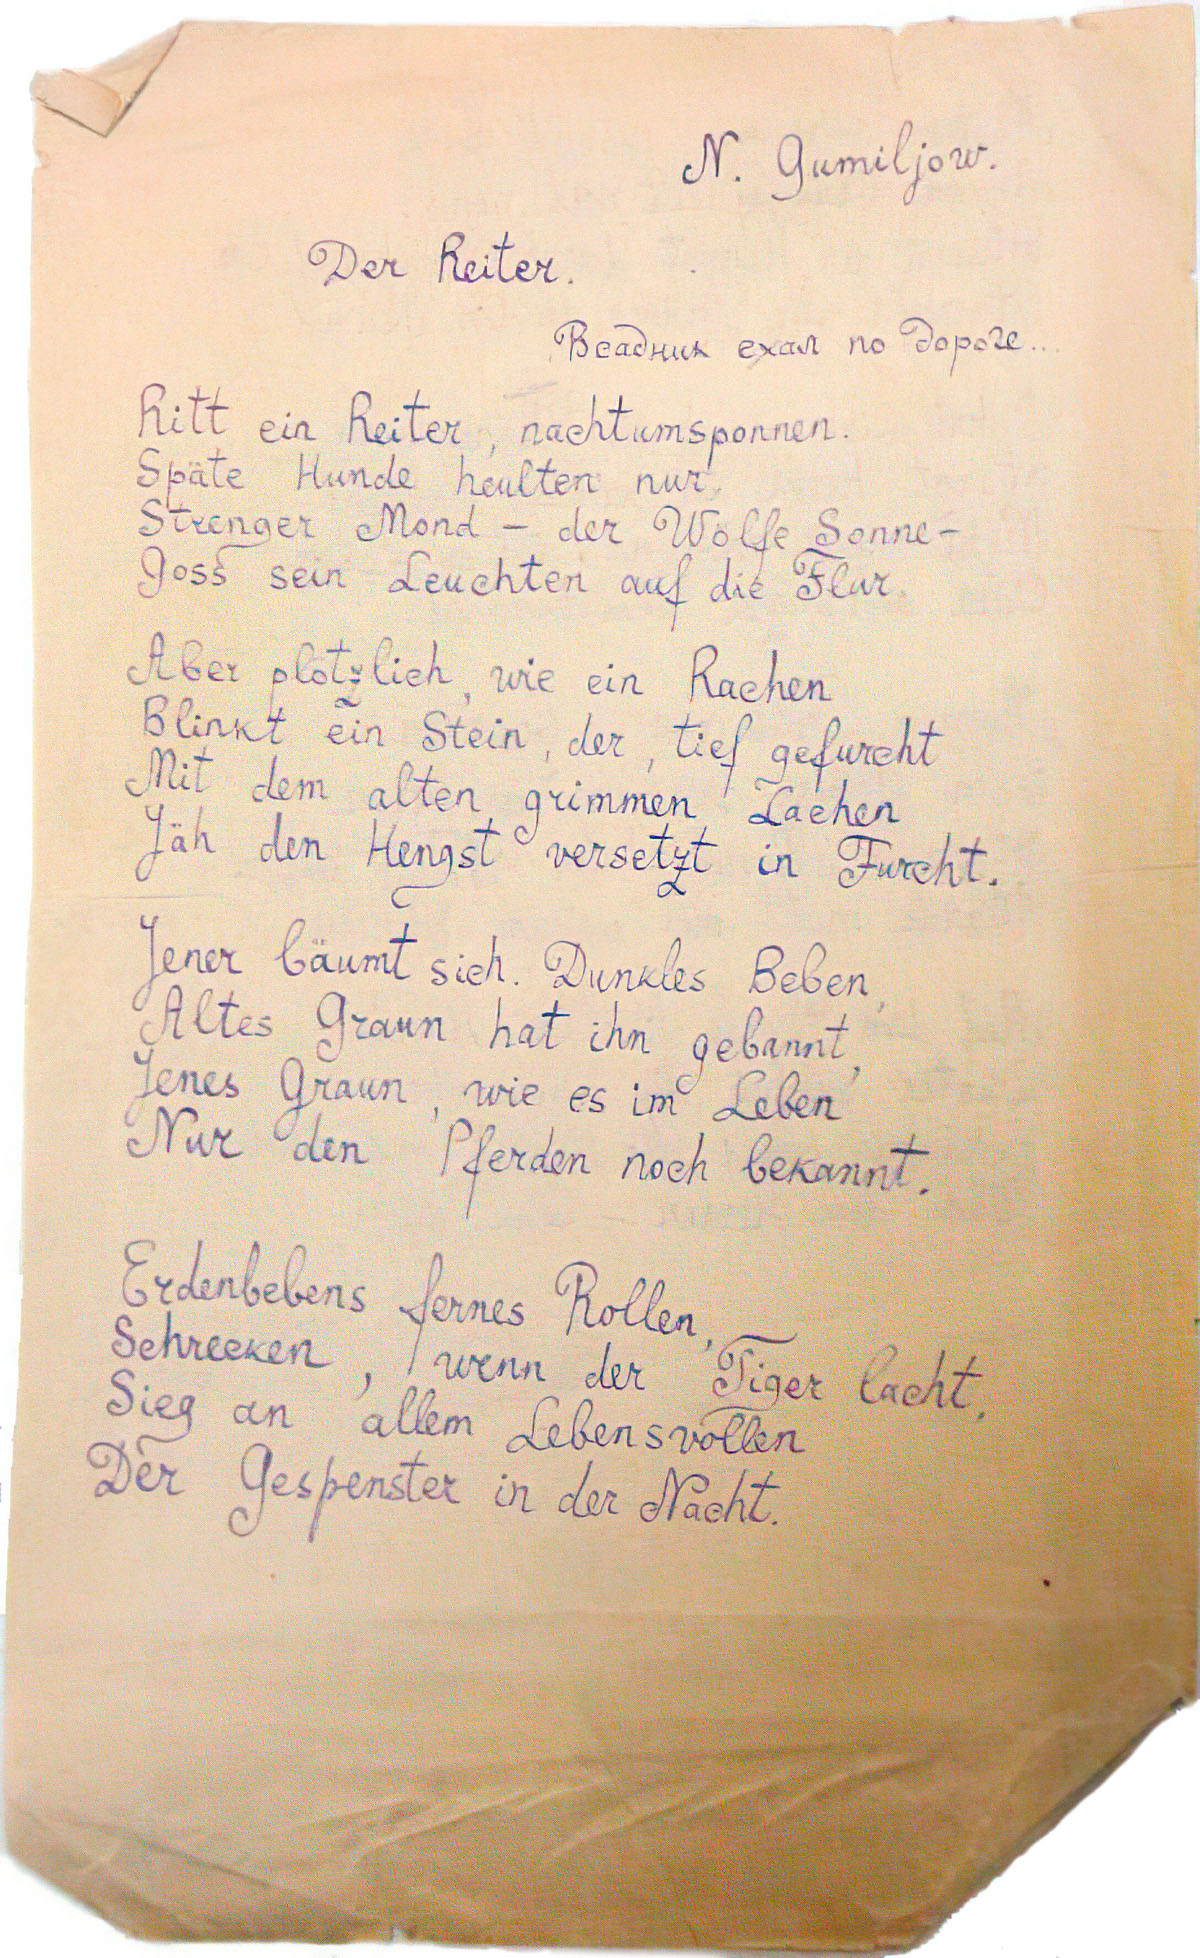 N. Gumiljow.
Der Reiter.
Всадник ехал по дороге...
Ritt ein Reiter, nachtumsponnen.
Späte Hunde heulten nur,
Strenger Mond – der Wölfe Sonne –
Goss sein Leuchten auf die Flur.
Aber plötzlich, wie ein Rachen
Blinkt ein Stein, der, tief gefurcht
Mit dem alten, grimmen Lachen
Jäh den Hengst versetzt in Furcht.
Jener bäumt sich. Dunkles Beben,
Altes Graun hat ihn gebannt,
Jenes Graun, wie es im Leben
Nur den Pferden noch bekannt.
Erdenbebens fernes Rollen,
Schrecken, wenn der Tiger lacht,
Sieg an allem Lebensvollen
Der Gespenster in der Nacht.